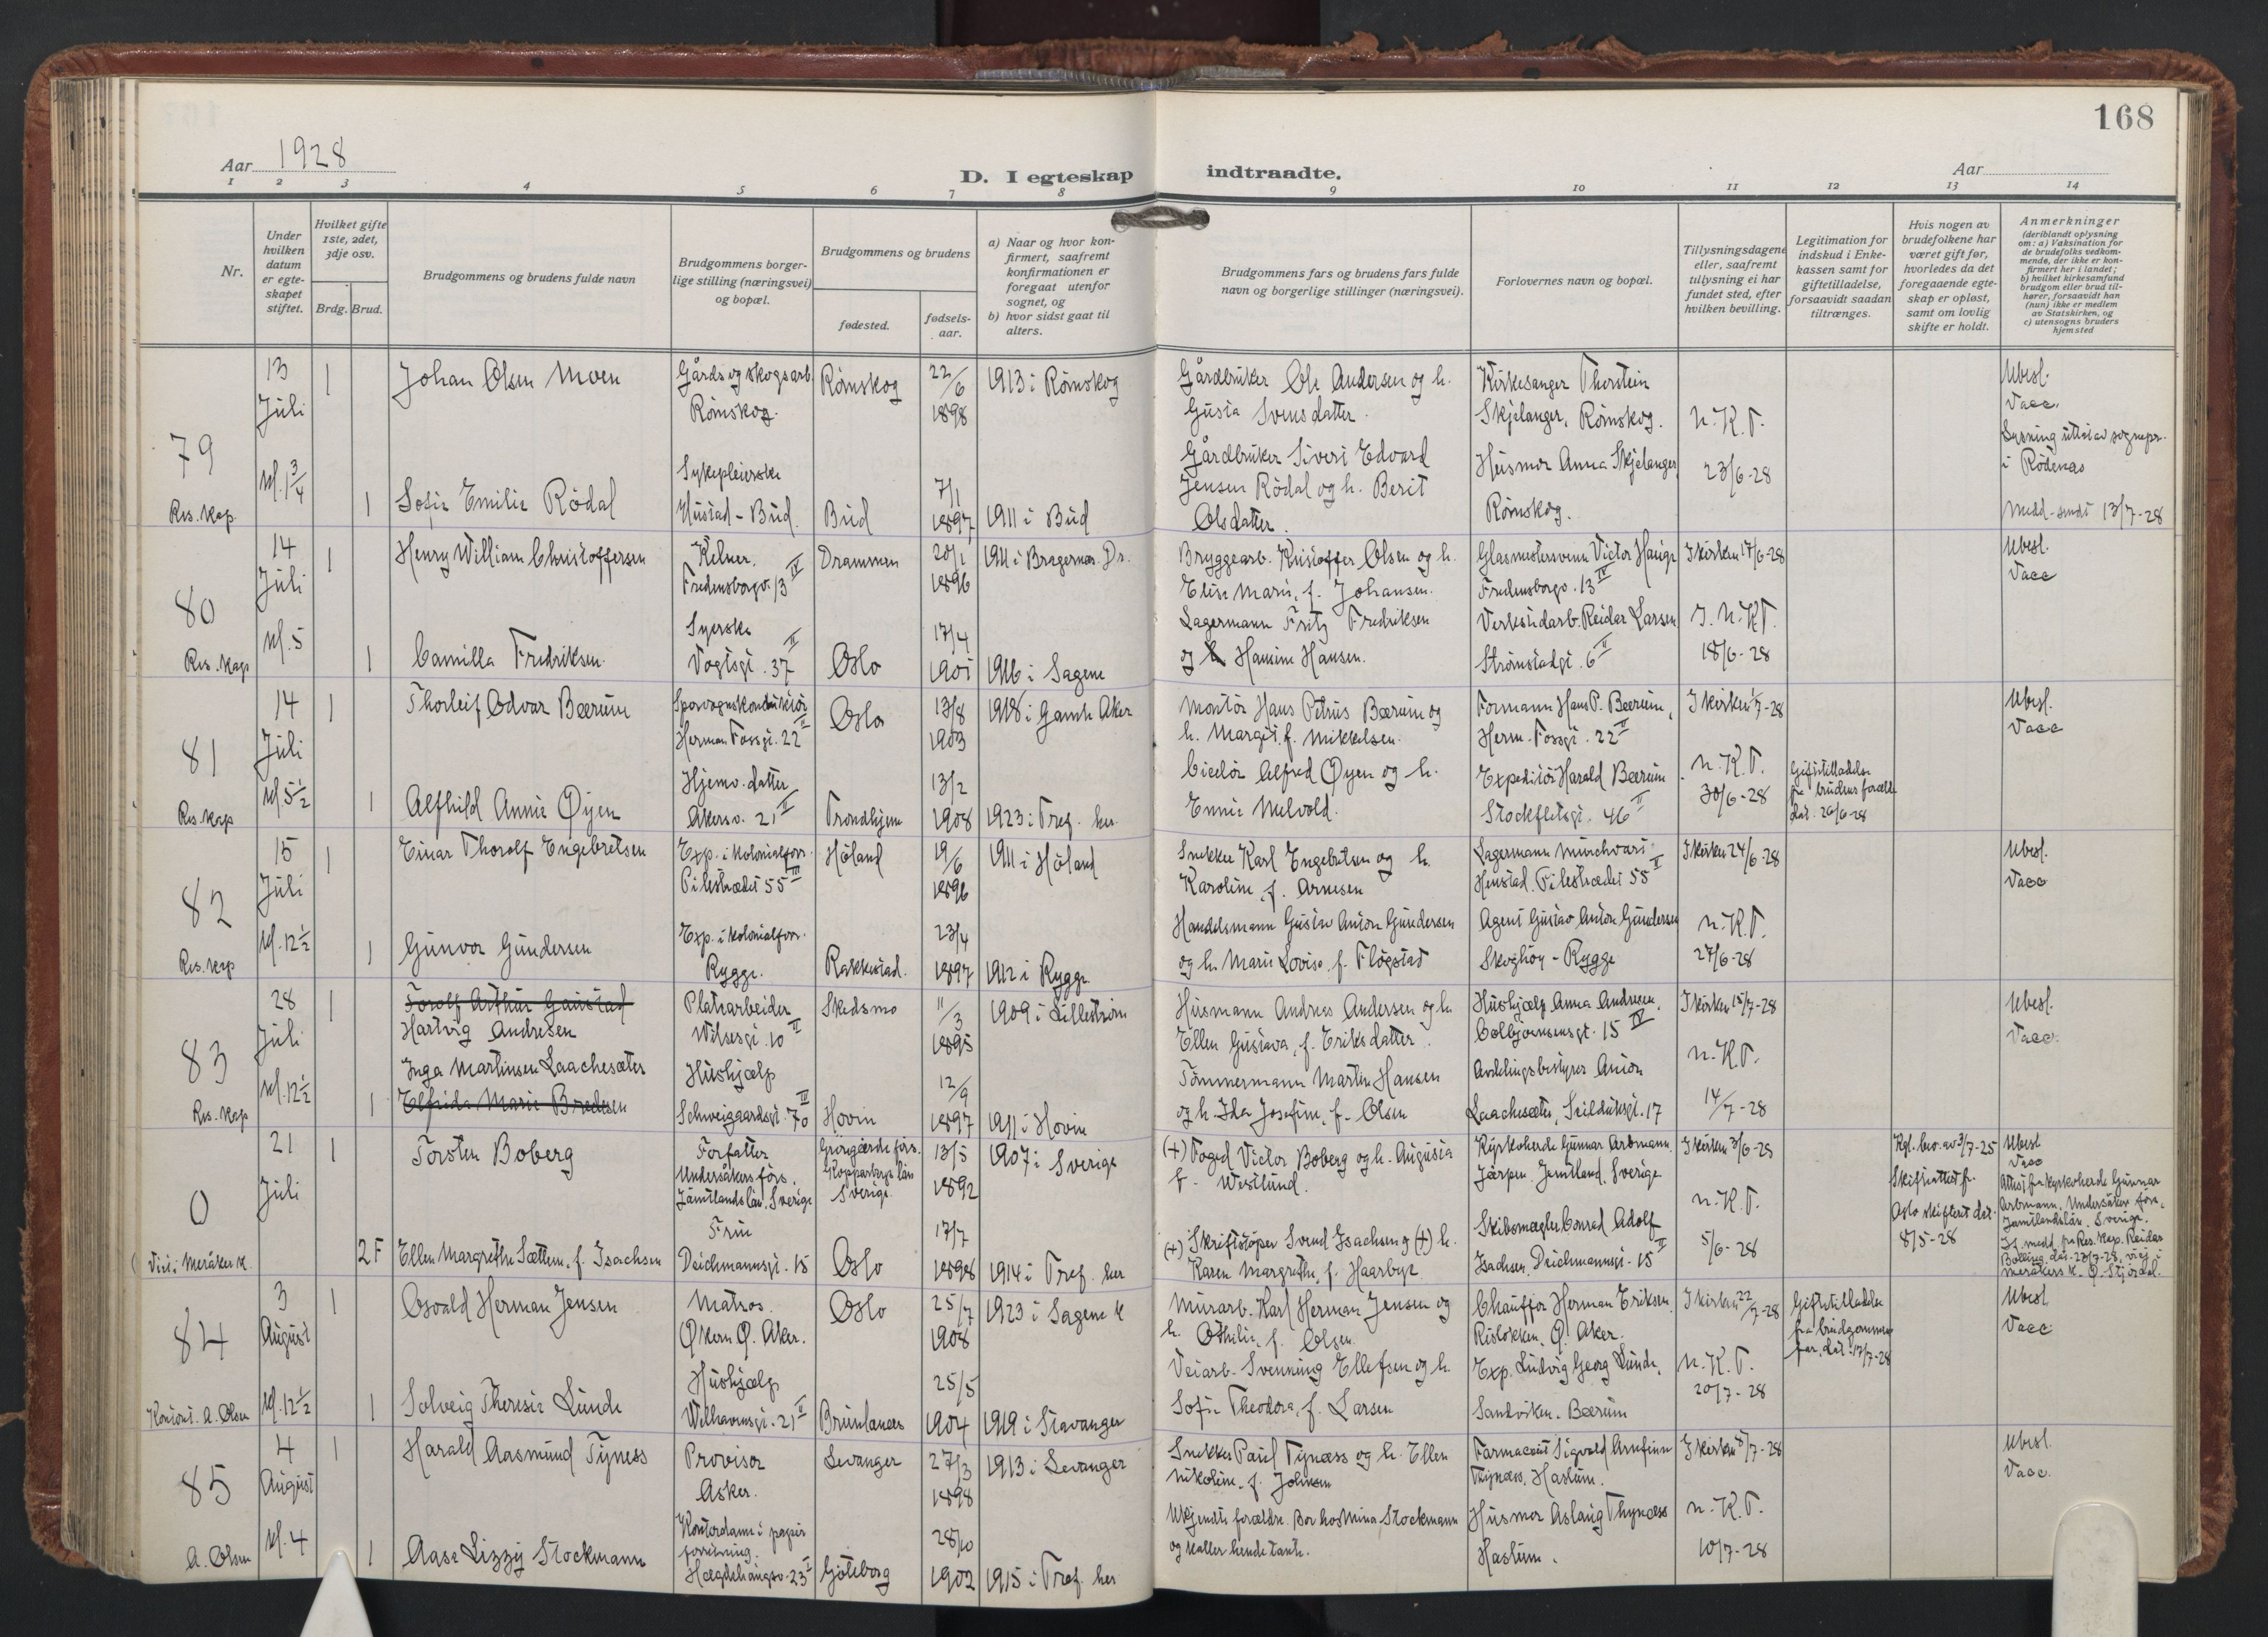 168
Aar 1928
D. I egteskap indtraadte.
Aar
1 2 3 4 5 6 7 8 9 10 11 12 13 14
Nr.
Under hvilken datum er egteskapet stiftet.
Hvilket gifte 1ste, 2det, 3dje osv.
Brdg. Brud.
Brudgommens og brudens fulde navn
Brudgommens borgerlige stilling (næringsvei) og bopæl.
Brudgommens og brudens
fødested.
fødselsaar.
a) Naar og hvor konfirmert, saafremt konfirmationen er foregaat utenfor sognet, og
b) hvor sidst gaat til alters.
Brudgommens fars og brudens fars fulde navn og borgerlige stillinger (næringsvei).
Forlovernes navn og bopæl.
Tillysningsdagene eller, saafremt tillysning ei har fundet sted, efter hvilken bevilling.
Legitimation for indskud i Enkekassen samt for giftetilladelse, forsaavidt saadan tiltrænges.
Hvis nogen av brudefolkene har været gift før, hvorledes da det foregaaende egteskap er opløst, samt om lovlig skifte er holdt.
Anmerkninger (deriblandt oplysning om: a) Vaksination for de brudefolks vedkommende, der ikke er konfirmert her i landet; b) hvilket kirkesamfund brudgom eller brud tilhører, forsaavidt han (hun) ikke er medlem av Statskirken, og c) utensogns bruders hjemsted
79
13 Juli
kl. 1 3/4
Res. kap.
1 Johan Olsen Moen
Gårds og skogsarb. Rømskog
Rømskog
22/6 1898
1913 i Rømskog
Gårdbruker Ole Andersen og h. Gusta Svensdatter.
Kirkesanger Thorstein Skjelanger, Rømskog.
n. K. T.
23/6-28
Ubesl.
Vacc.
Lysning utt. av sognepr. i Rødenes
Medd. sendt 13/7-28
1 Sofie Emilie Rödal
Sykepleierske
Hustad - Bud.
Bud
7/1 1897
1911 i Bud
Gårdbruker Sivert Edvard Jensen Rödal og h. Berit Olsdatter.
Husmor Anna Skjelanger Rømskog.
80
14 Juli
kl. 5
Res. kap
1 Henry William Christoffersen
Kelner.
Fredensborgv. 13 IV
Drammen
20/1 1896
1911 i Bragernes. Dr.
Bryggearb. Kristoffer Olsen og h. Elise Marie, f. Johansen.
Glasmestersvenn Victor Hauge Fredensborgv. 13 IV
I kirken 17/6-28
I. n. K. T.
18/6-28
Ubesl.
Vacc
1 Camilla Fredriksen.
Syerske
Vogtsgt. 37 II
Oslo
17/4 1901
1916 i Sagene
Lagermann Fritz Fredriksen og h Hansine Hansen.
Verkstedarb. Reidar Larsen Strømstadgt. 6 II
81
14 Juli
kl. 5 1/2
Res. kap
1 Thorleif Odvar Bærum
Sporvognskonduktør
Herman Fossgt. 22 II
Oslo
13/8 1903
1918 i Gamle Aker
Montör Hans Petrus Bærum og h. Margit, f. Mikkelsen.
Formann Hans P. Bærum, Herm. Fossgt. 22 II
I kirken 1/7-28
n. K. T.
30/6-28
Giftetilladelse fra brudens forældre dat. 26/6-28
Ubesl.
Vacc
1 Alfhild Annie Øyen
Hjemv. datter
Akersv. 21 II
Trondhjem
13/2 1908
1923 i Tref. her
Ciselör Alfred Øyen og h. Ennie Melvold.
Expeditör Harald Bærum Stockfletsgt. 46 II
82
15 Juli
kl. 12 1/2
Res. kap
1 Einar Thorolf Engebretsen
Exp. i kolonialforr.
Pilestrædet 55 III
Höland
19/6 1896
1911 i Höland
Snekker Karl Engebretsen og h. Karoline, f. Arnesen
Lagermann Henstad. Pilestrædet 55 II
I kirken 24/6-28
n. K. T.
27/6-28
Ubesl.
Vacc
1 Gunvor Gundersen
Exp. i kolonialforr.
Rygge.
Rakkestad.
23/4 1897
1912 i Rygge
Handelsmann Gustav Anton Gundersen og h. Marie Lovise, f. Flögstad
Agent Gustav Anton Gundersen Skoghöy - Rygge
83
28 Juli
kl. 12 1/2
Res. kap
1 Torolf Arthur Gaustad
Hartvig Andresen
Platearbeider
Wilsesgt. 10 II
Skedsmo
11/3 1895
1909 i Lilleström
Husmann Andreas Andersen og h. Ellen Gustava, f. Eriksdatter.
Hushjælp Anna Andresen, Colbjørnsensgt. 15 IV
I kirken 15/7-28
n. K. T.
14/7-28
Ubesl.
Vacc.
1 Inga Martinsen Laachesæter
Elfrida Marie Bredesen
Hushjælp
Schweigaardsgt. 70 IV
Hovin
12/9 1897
1911 i Hovin
Tömmermann Martin Hansen og h. Ida Josefine, f. Olsen
Avdelingsbestyrer Anton Laachesæter, Sxilduksgt. 17
0
21 Juli
Viet i Meråker k.
1 Torsten Boberg
Forfatter
Undersåkers förs. Jämtlandslän, Sverige
Kopparbergs län Sverige.
13/5 1892
1907 i Sverige
(+) Foged Victor Boberg og h. Augusta f. Westlund.
Kyrkoherde Gunnar Arbmann Järpen. Jämtland. Sverige
I kirken 3/6-28
n. K. T.
5/6-28
Kgl. bev. av 3/7-25
Skifteattest fr. Oslo skifteret dat. 8/5-28
Ubesl
Vacc
Attest fra kyrkoherde Gunnar Arbmann, Undersåker förs., Jamtlandslän. Sverige.
medd. fra Res. Kap. Reidar Bolling, dat. 23/7-28, viet i Meråkers k. Ø. Stjördal.
2 F Ellen Margrethe Sættem, f. Isachsen
Frue
Deichmannsgt. 15
Oslo
17/7 1898
1914 i Tref. her
(+) Skriftstöper Svend Isachsen og (+) h. Karen Margrethe, f. Haarbye
Skibsmægler Conrad Adolf Isachsen, Deichmannsgt. 15 II
84
3 August
kl. 12 1/2
Konst. A. Olsen
1 Osvald Herman Jensen
Matros.
Økern Ø. Aker.
Oslo
25/7 1908
1923 i Sagene k
Murarb. Karl Herman Jensen og h. Othilie, f. Olsen.
Chauffør Herman Eriksen Risløkken, Ø. Aker.
I kirken 22/7-28
n. K. T.
20/7-28
Giftetilladelse fra brudgommens far, dat. 17/7-28
Ubesl
Vacc
1 Solveig Theresie Lunde
Hushjælp
Welhavensgt. 21 II
Brunlanes
25/5 1904
1919 i Stavanger
Veiarb. Svenning Ellefsen og h. Sofie Theodora, f. Larsen
Exp. Ludvig Georg Lunde, Sandviken. Bærum
85
4 August
kl. 4
A. Olsen
1 Harald Aasmund Tyness
Provisor
Asker.
Levanger
27/3 1898
1913 i Levanger
Snekker Paul Tynæss og h. Ellen Nikoline, f. Johnsen
Farmaceut Sigvald Arnfinn Thynæss, Haslum.
I kirken 8/7-28
n. K. T.
10/7-28
Ubesl.
Vacc.
1 Aase Lizzy Stockmann
Kontordame i papirforretning.
Hægdehaugsv. 23 I
Göteborg
28/10 1902
1915 i Tref. her
Ukjendte forældre. Bor hos Mina Stockmann og kaller hende tante.
Husmor Aslaug Thynæss Haslum.